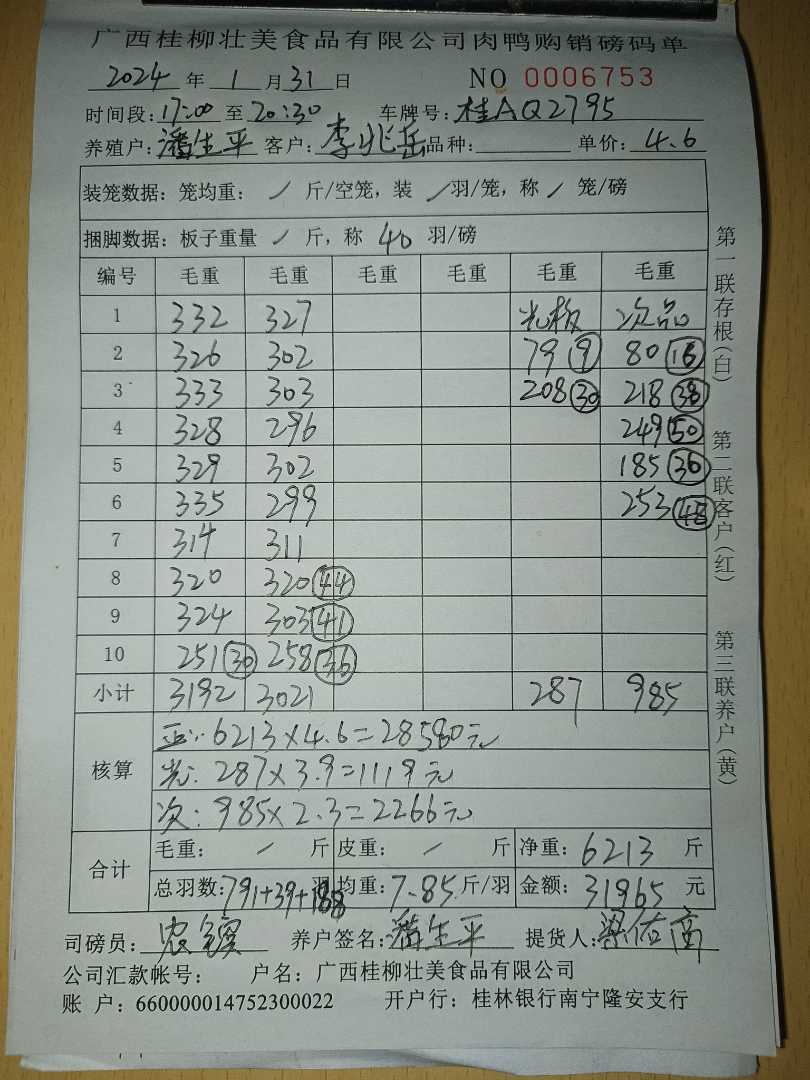 广西桂柳壮美食品有限公司肉鸭购销磅码单
2024 年 1 月 31 日 NO 0006753
时间段: 17:00 至 20:30 车牌号: 桂AQ2795
养殖户: 潘生平 客户: 李兆岳 品种: 单价: 4.6
装笼数据: 笼均重: / 斤/空笼, 装 / 羽/笼, 称 / 笼/磅
捆脚数据: 板子重量 / 斤, 称 40 羽/磅
编号 毛重 毛重 毛重 毛重 毛重 毛重
1 332 327 光板 次品
2 326 302 79 (9) 80 (16)
3 333 303 208 (30) 218 (38)
4 328 296 249 (50)
5 329 302 185 (36)
6 335 299 253 (48)
7 314 311
8 320 320 (44)
9 324 303 (41)
10 251 (30) 258 (36)
小计 3192 3021 287 985
核算
正: 6213×4.6=28580元
光: 287×3.9=1119元
次: 985×2.3=2266元
合计
毛重: / 斤 皮重: / 斤 净重: 6213 斤
总羽数: 791+39+188 羽 均重: 7.85 斤/羽 金额: 31965 元
司磅员: 农 养户签名: 潘生平 提货人: 梁佑高
公司汇款帐号: 户名: 广西桂柳壮美食品有限公司
账 户: 660000014752300022 开户行: 桂林银行南宁隆安支行
第一联存根(白) 第二联客户(红) 第三联养户(黄)